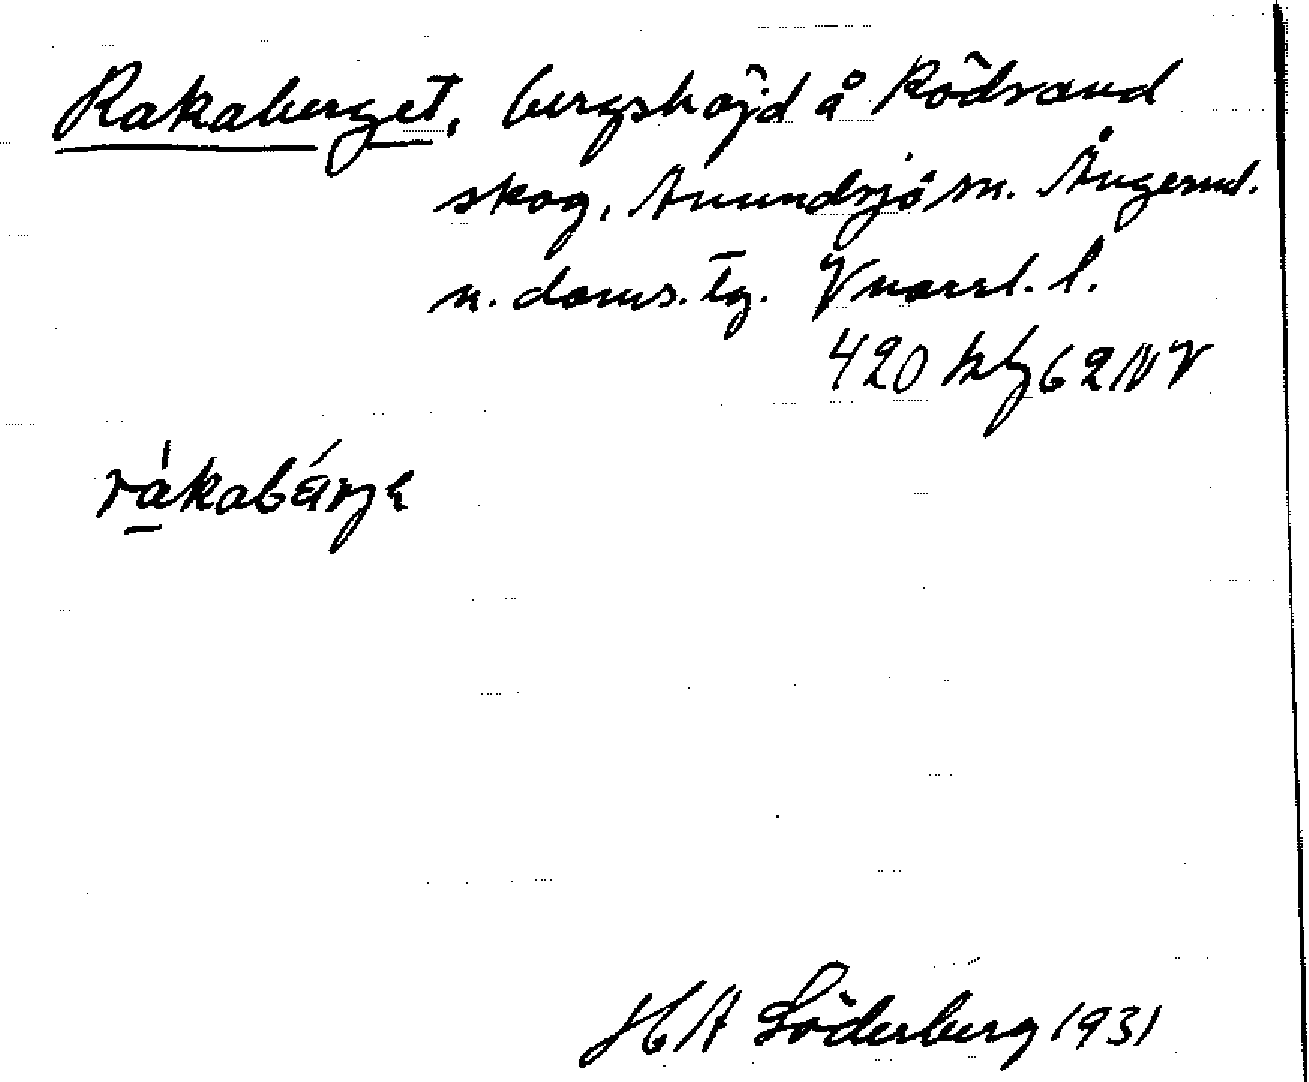 Rakaberget, bergshöjd å Rödsand
skog, Anundsjö sn. Ångerml.
n. doms. tg. Vnorrl. l.
420 kbl 62 NV
rákabárje
H A Söderberg 1931